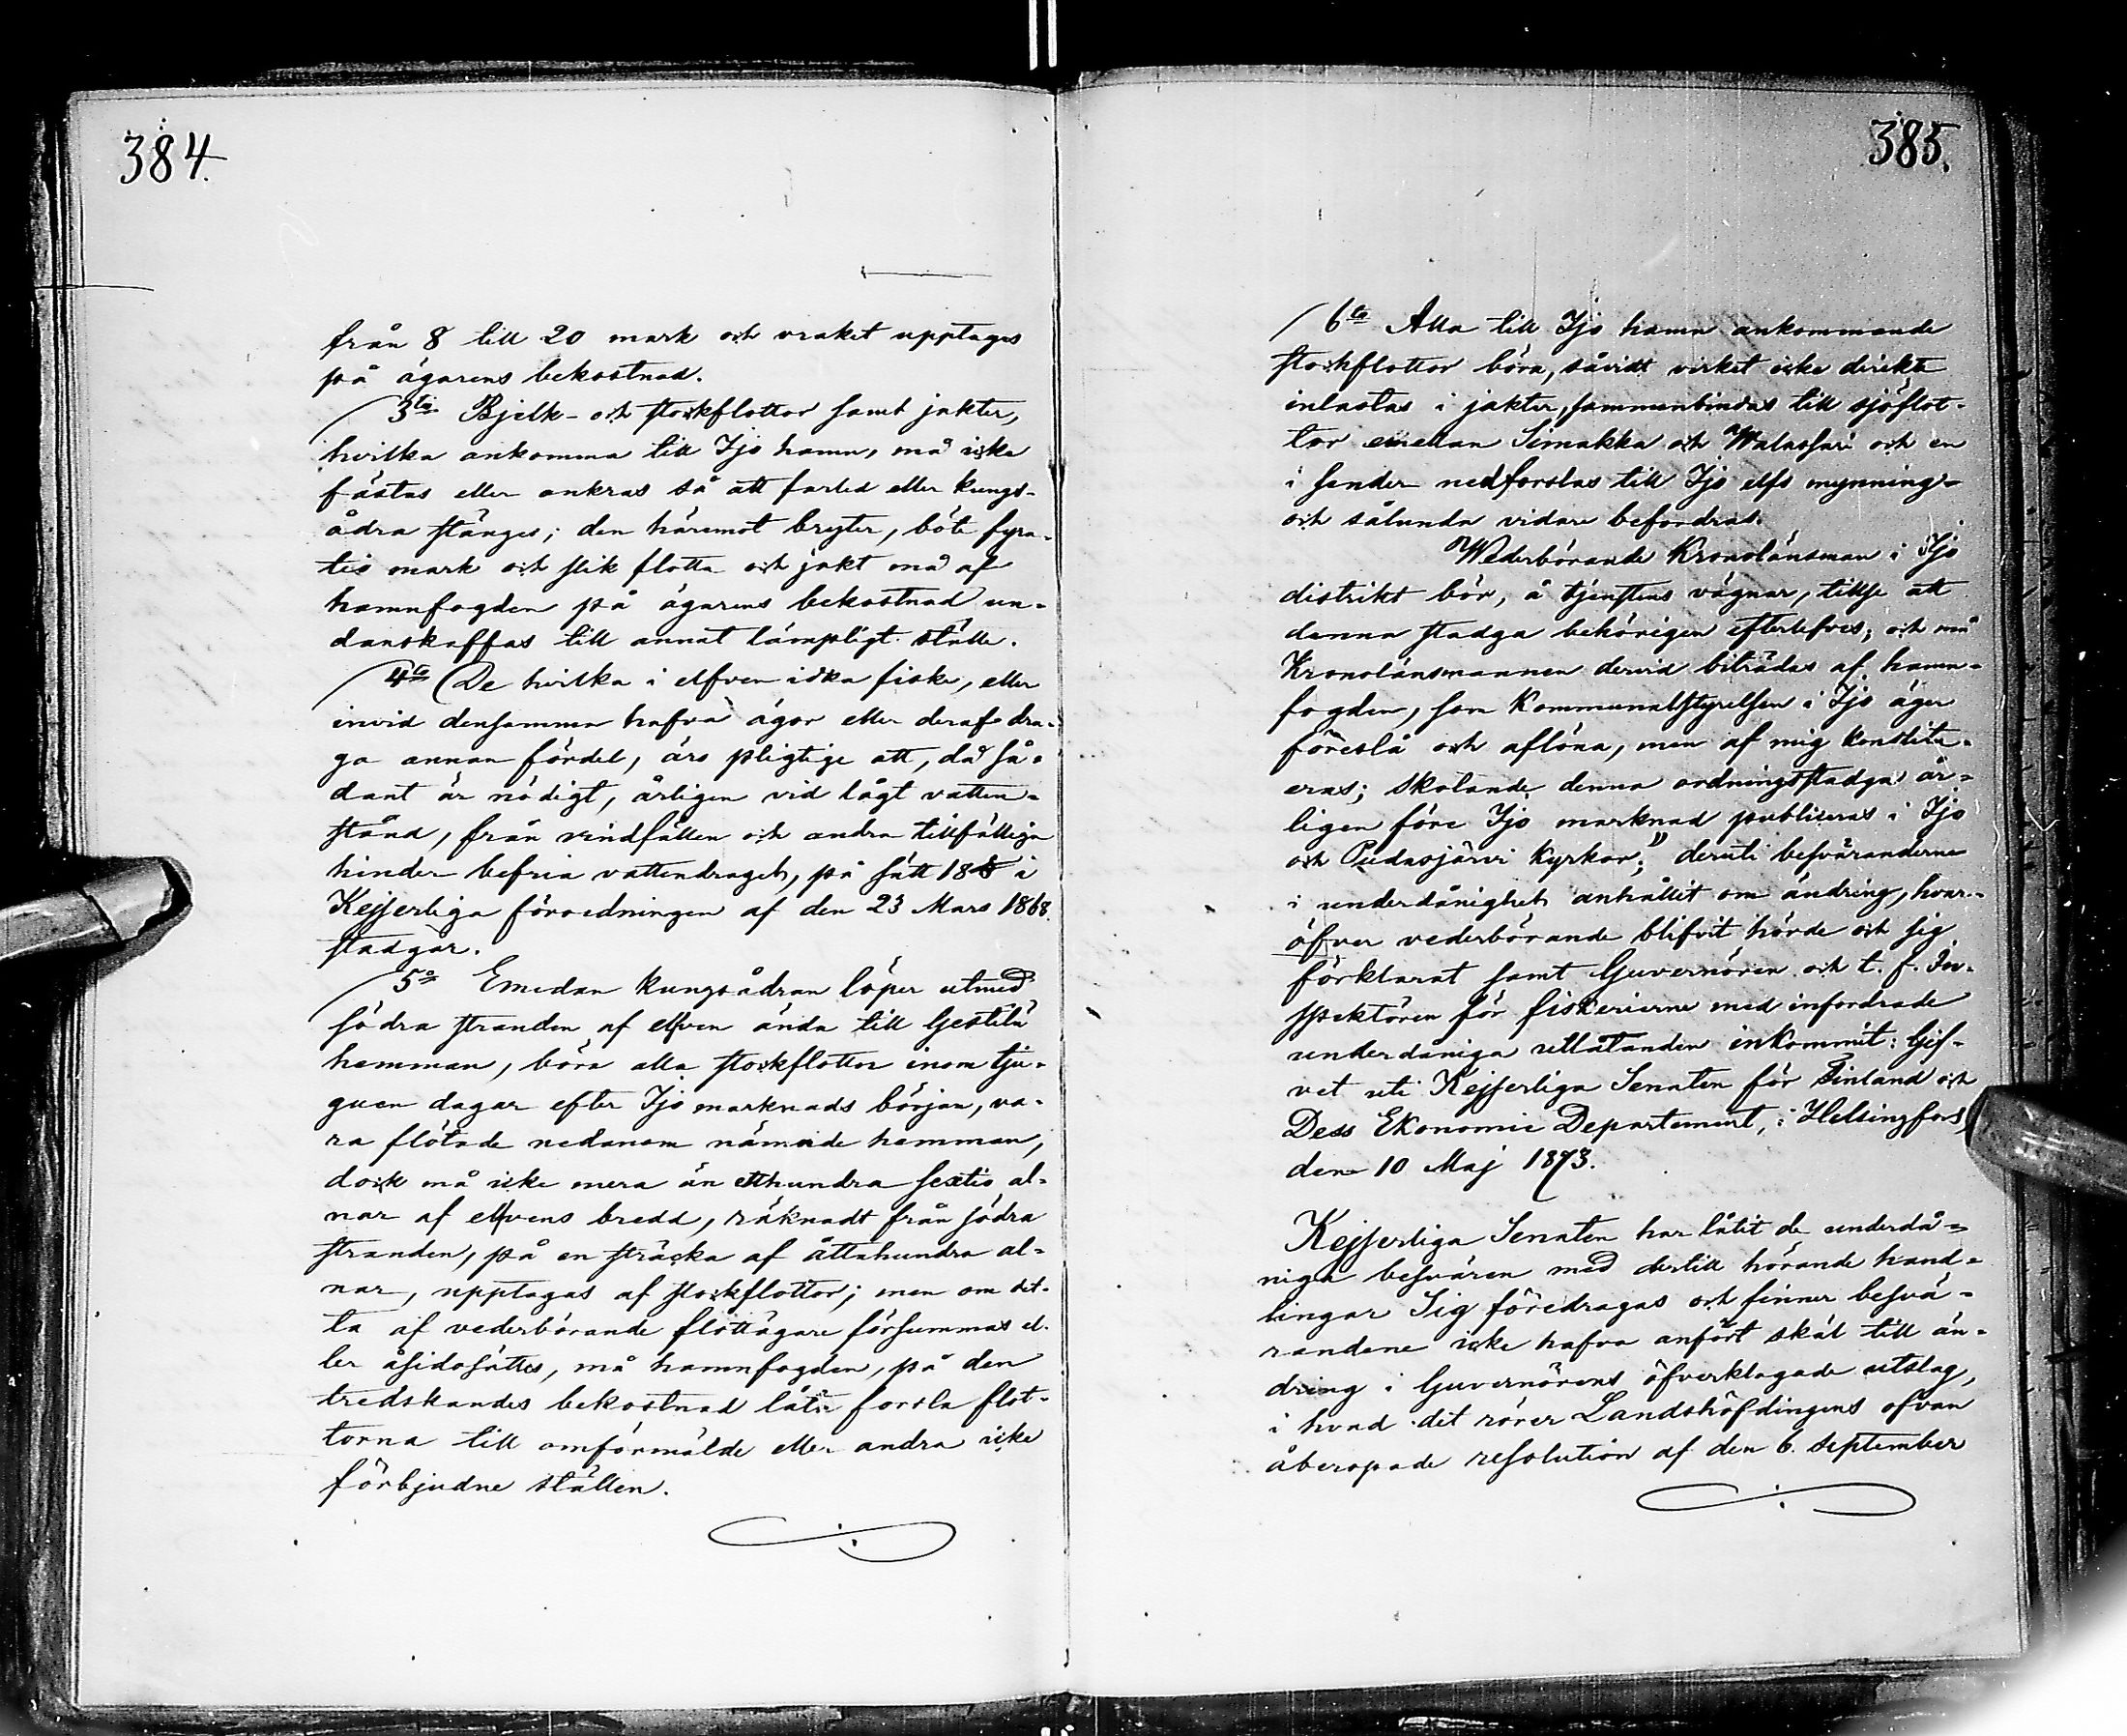 384.
från 8 till 20 mark och vraket upptages
på ägarens bekostnad.
3tio Bjelk- och stockflottor samt jakter,
hvilka ankomma till Ijo hamn, må icke
fästas eller ankras så att farled eller kungs-
ådra stänges; den häremot bryter, böte fyra-
tio mark och slik flotta och jakt må af
hamnfogden på ägarens bekostnad un-
danskaffas till annat lämpligt ställe.
4to De hvilka i elfven idka fiske, eller
invid densamma hafva ägor eller deraf dra-
ga annan fördel, äro pligtige att, då så-
dant är nödigt, årligen vid lågt vatten-
stånd, från vindfällen och andra tillfälliga
hinder befria vattendraget, på sätt 18 § i
Kejserliga förordningen af den 23 Mars 1868.
stadgar.
5o Emedan kungsådran löper utmed
södra stranden af elfven ända till Gestilä
hemman, böra alla stockflottor inom tju-
guen dagar efter Ijo marknads början, va-
ra flötade nedanom nämnde hemman,
dock må icke mera än etthundra sextio al-
nar af elfvens bredd, räknadt från södra
stranden, på en sträcka af åttahundra al-
nar, upptagas af stockflottor; men om det-
ta af vederbörande flottägare försummas el-
ler åsidosättes, må hamnfogden, på den
tredskandes bekostnad låta forsla flot-
torna till omförmälde eller andra icke
förbjudne ställen.
385.
6to Alla till Ijo hamn ankommande
stockflottor böra, såvidt virket icke direkte
inlastas i jakter, sammanbindas till sjöflot-
tor emellan Simakka och Walassari och en
i sender nedforslas till Ijo elfs mynning
och sålunda vidare befordras.
Wederbörande Kronolänsman i Ijo
distrikt bör, å tjenstens vägnar, tillse att
denna stadga behörigen efterlefves; och må
Kronolänsmannen dervid biträdas af hamn-
fogden, som Kommunalstyrelsen i Ijo äger
föreslå och aflöna, men af mig konstitu-
eras; skolande denna ordningsstadga år-
ligen före Ijo marknad publiceras i Ijo
och Pudasjärvi Kyrkor;" deruti besväranderne
i underdånighet anhållit om ändring, hvar-
öfver vederbörande blifvit hörde och sig
förklarat samt Guvernören och t. f. In-
spektören för fiskerierne med infordrade
underdåniga utlåtanden inkommit: Gif-
vet uti Kejserliga Senaten för Finland och
Dess Ekonomie Departement, i Helsingfors,
den 10 Maj 1873.
Kejserliga Senaten har låtit de underdå-
niga besvären med dertill hörande hand-
lingar Sig föredragas och finner besvä-
randene icke hafva anfört skäl till än-
dring i Guvernörens öfverklagade utslag,
i hvad det rörer Landshöfdingens ofvan
åberopade resolution af den 6. September